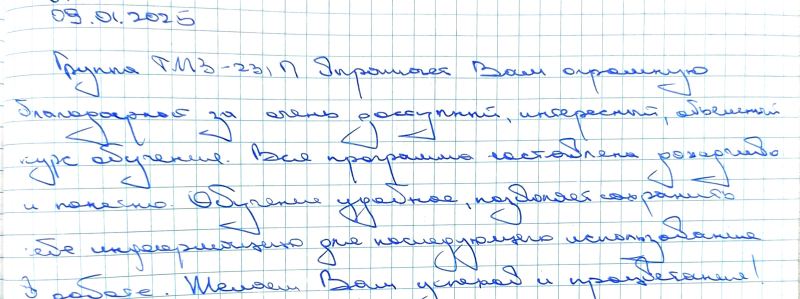 09.01.2025
Группа ТМЗ-23, П Выражает Вам огромную
благодарность за очень доступный, интересный, объемный
курс обучения. Вся программа составлена доходчиво
и понятно. Обучение удобное, позволяет сохранить
себе информацию для последующего использования
в работе. Желаем Вам успехов и процветания!